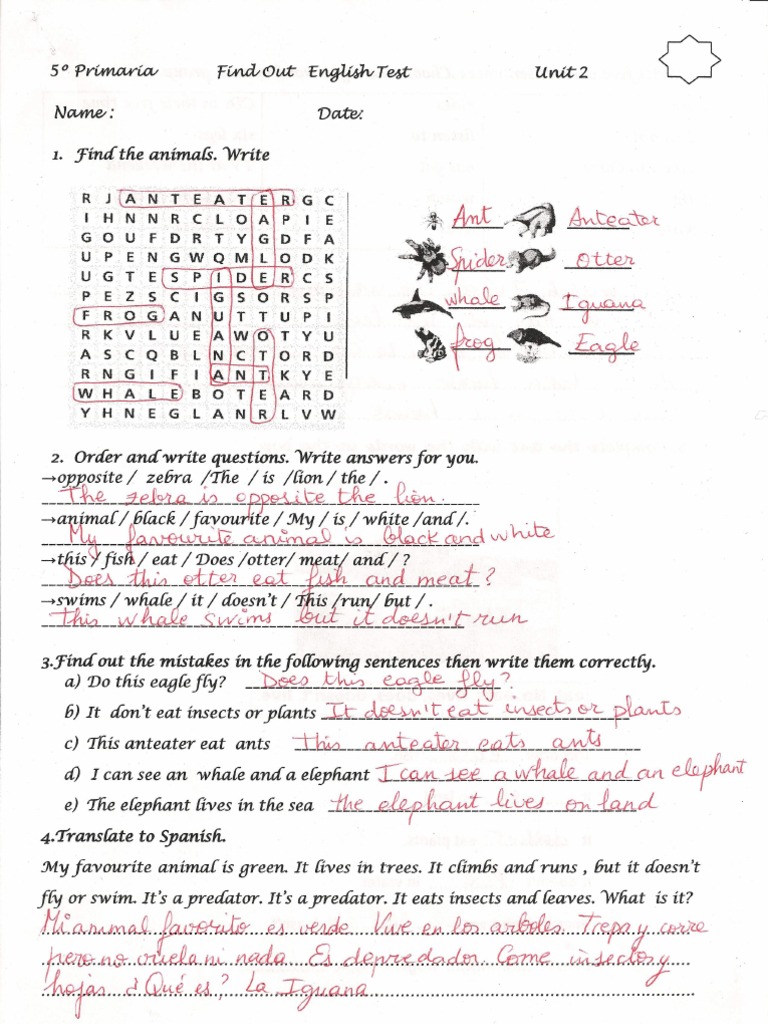 5º Primaria Find Out English Test Unit 2
Name : Date:
1. Find the animals. Write
R J A N T E A T E R G C
I H N N R C L O A P I E
G O U F D R T Y G D F A
U P E N G W Q M L O D K
U G T E S P I D E R C S
P E Z S C I G S O R S P
F R O G A N U T T U P I
R K V L U E A W O T Y U
A S C Q B L N C T O R D
R N G I F I A N T K Y E
W H A L E B O T E A R D
Y H N E G L A N R L V W
Ant Anteater
Spider Otter
whale Iguana
frog Eagle
2. Order and write questions. Write answers for you.
→opposite / zebra /The / is /lion / the / .
The zebra is opposite the lion.
→animal / black / favourite / My / is / white /and /.
My favourite animal is black and white
→this / fish / eat / Does /otter/ meat/ and / ?
Does this otter eat fish and meat?
→swims / whale / it / doesn't / This /run/ but / .
This whale swims but it doesn't run
3.Find out the mistakes in the following sentences then write them correctly.
a) Do this eagle fly? Does this eagle fly?
b) It don't eat insects or plants It doesn't eat insects or plants
c) This anteater eat ants This anteater eats ants
d) I can see an whale and a elephant I can see a whale and an elephant
e) The elephant lives in the sea the elephant lives on land
4.Translate to Spanish.
My favourite animal is green. It lives in trees. It climbs and runs , but it doesn't
fly or swim. It's a predator. It's a predator. It eats insects and leaves. What is it?
Mi animal favorito es verde. Vive en los arboles. Trepa y corre
pero no vuela ni nada. Es depredador. Come insectos y
hojas ¿Qué es? La Iguana